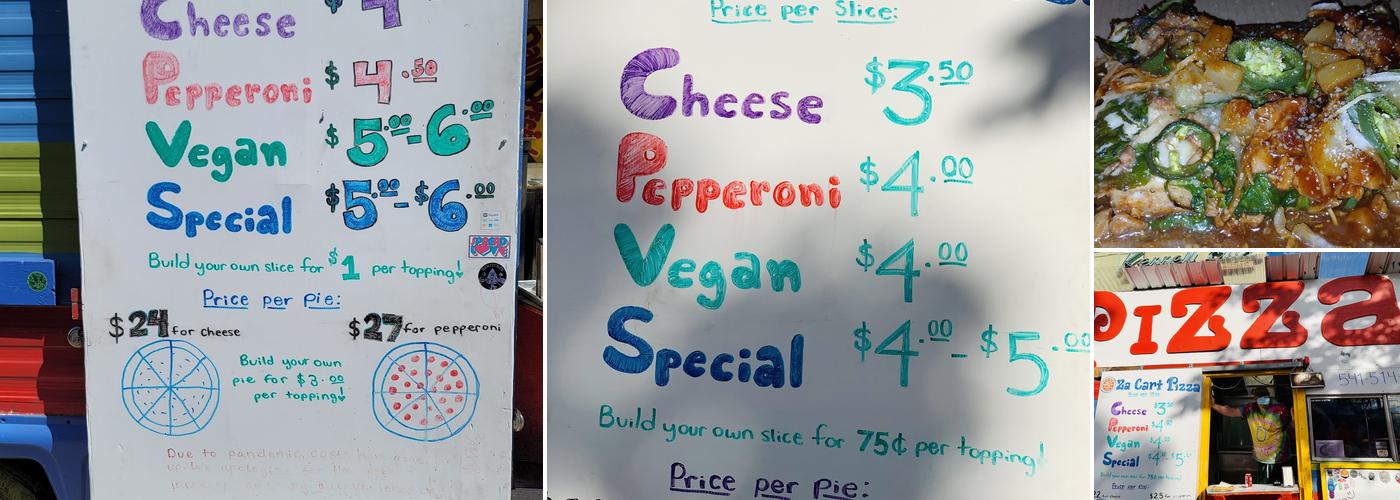 Cheese $4
Pepperoni $4.50
Vegan $5.00-6.00
Special $5.00-$6.00
Build your own slice for $1 per topping!
Price per Pie:
$24 for cheese
$27 for pepperoni
Build your own
pie for $3.00
per topping!
Due to pandemic, costs
up. We apologize
Price per Slice:
Cheese $3.50
Pepperoni $4.00
Vegan $4.00
Special $4.00-$5.00
Build your own slice for 75¢ per topping!
Price per Pie:
PIZZa
541-514
Za Cart Pizza
Cheese $3.50
Pepperoni $4.00
Vegan $4.00
Special $4.00-$5
Build your own slice for 75¢ per topping!
Price per Pie: